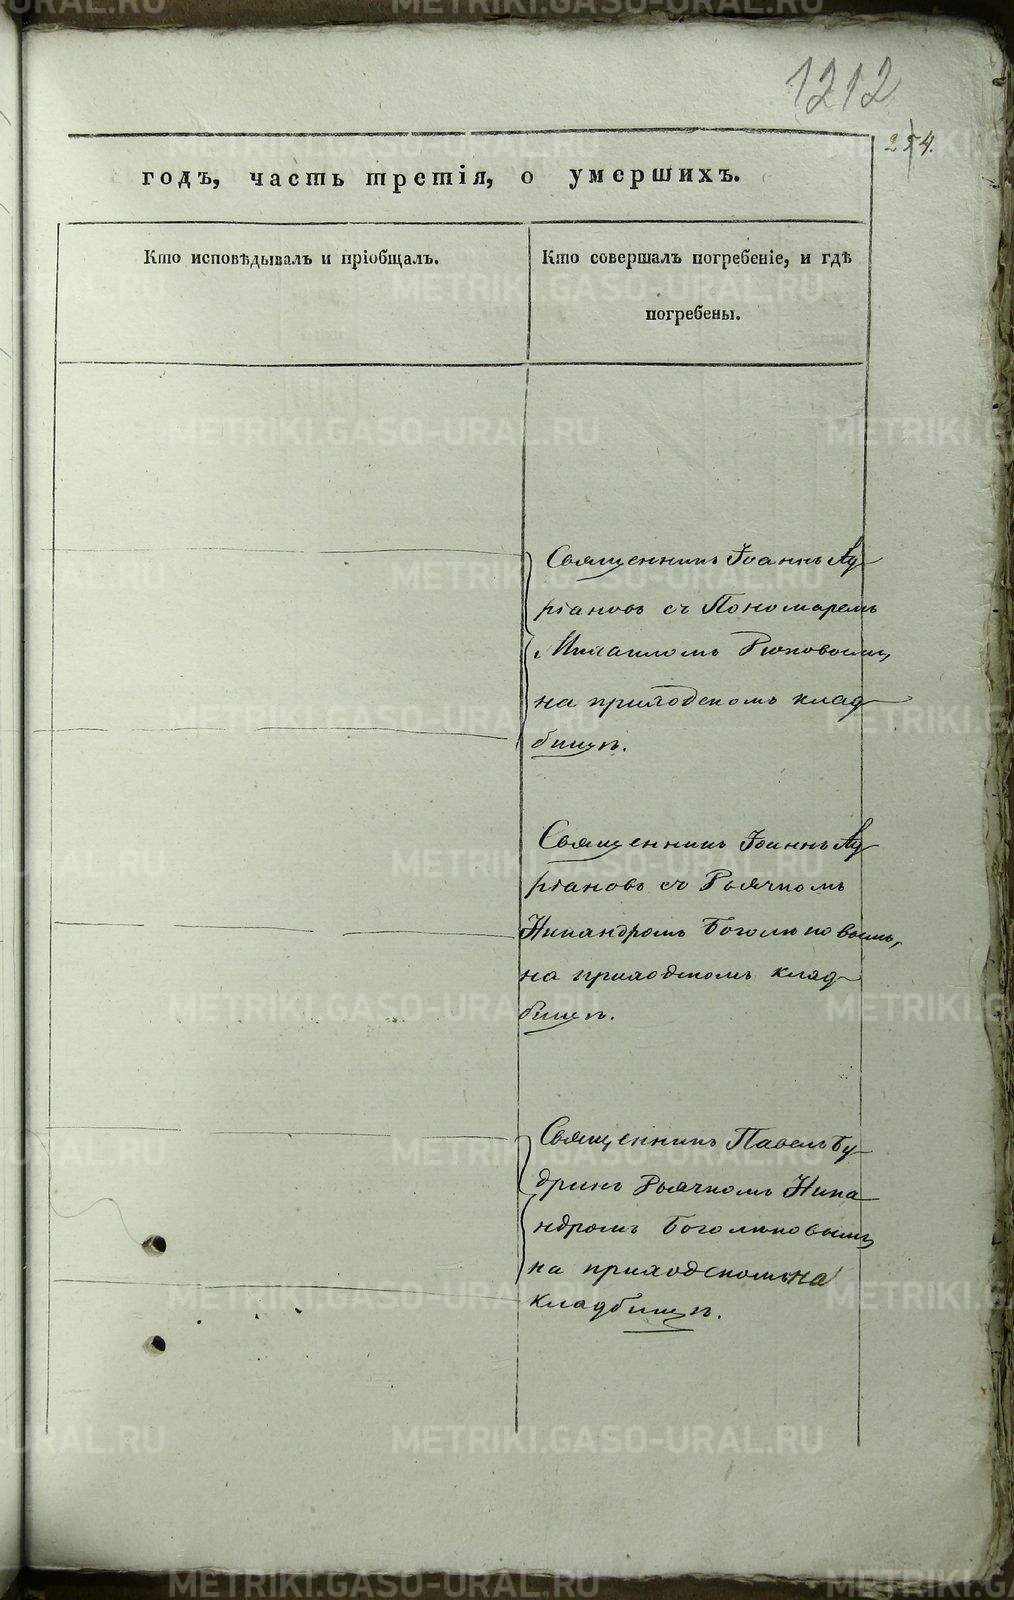 1212
254.
годъ, часть третія, о умершихъ.
Кто исповѣдывалъ и пріобщалъ.
Кто совершалъ погребеніе, и гдѣ
погребены.
Священникъ Іоаннъ Лу
кановъ съ Пономаремъ
Михаиломъ
на приходскомъ клад
бищѣ.
Священникъ Іоаннъ Лу
кановъ съ Дьячкомъ
Никандромъ Боголюповымъ,
на приходскомъ клад
бищѣ.
Священникъ Павелъ Бу
дринъ Дьячкомъ Ника
ндромъ Боголюповымъ
на приходскомъ на
кладбищѣ.
METRIKI.GASO-URAL.RU